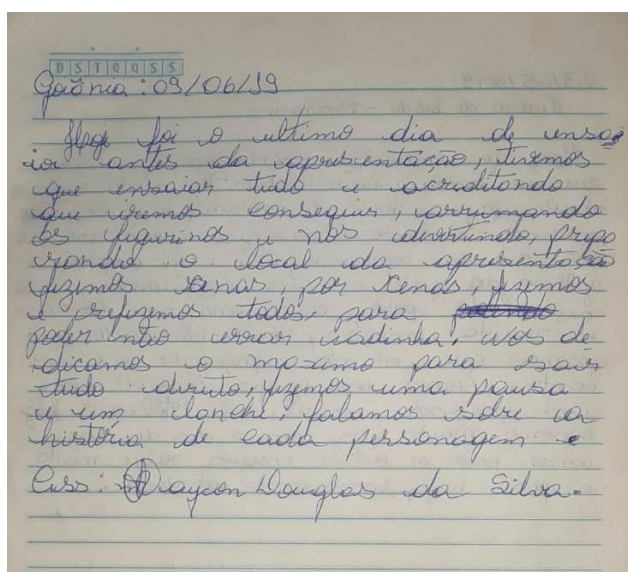 D S T Q Q S S
Goiânia: 09/06/19
Hoje foi o ultimo dia de ensa
iar antes da apresentação, tivemos
que ensaiar tudo e acreditando
que iremos conseguir, arrumando
os figurinos e nos divertindo, prepa
rando o local da apresentação
fizemos xenas, por xenas, fizemos
e refizemos todos, para
poder não errar nadinha, nos de
dicamos o maximo para sair
tudo direito, fizemos uma pausa
e um lanche, falamos sobre a
história de cada personagem e
Ass: Maycon Douglas da Silva.